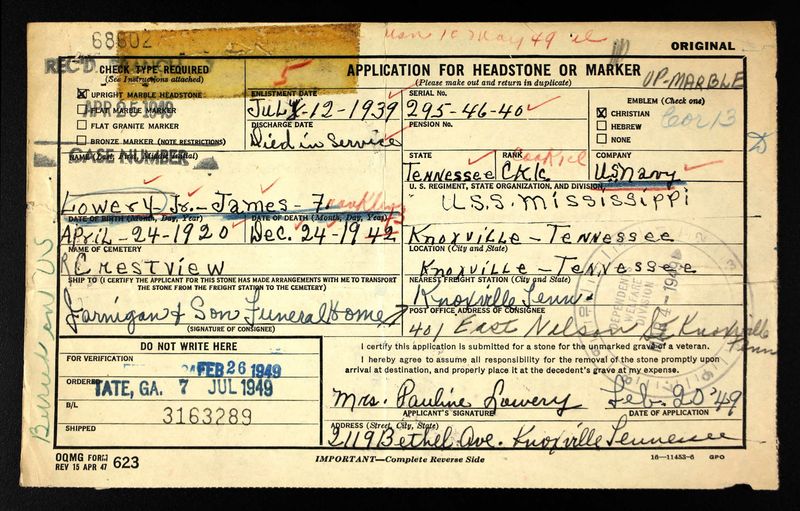 68802
ORIGINAL
REC'D
CHECK TYPE REQUIRED
(See Instructions attached)
5
APPLICATION FOR HEADSTONE OR MARKER
(Please make out and return in duplicate)
UP-MARBLE
UPRIGHT MARBLE HEADSTONE
FLAT MARBLE MARKER
FLAT GRANITE MARKER
BRONZE MARKER (NOTE RESTRICTIONS)
APR 25 1949
ENLISTMENT DATE
July-12-1939
DISCHARGE DATE
Died in Service
SERIAL No.
295-46-40
PENSION No.
EMBLEM (Check one)
CHRISTIAN
HEBREW
NONE
Cor 13
CASE NUMBER
NAME (Last, First, Middle Initial)
Lowery Jr.-James-F.
STATE
Tennessee
RANK
CK 1c
COMPANY
U.S. Navy
U. S. REGIMENT, STATE ORGANIZATION, AND DIVISION
U.S.S. Mississippi
DATE OF BIRTH (Month, Day, Year)
April-24-1920
DATE OF DEATH (Month, Day, Year)
Dec. 24-1942
Knoxville-Tennessee
NAME OF CEMETERY
Crestview
LOCATION (City and State)
Knoxville-Tennessee
SHIP TO (I CERTIFY THE APPLICANT FOR THIS STONE HAS MADE ARRANGEMENTS WITH ME TO TRANSPORT
THE STONE FROM THE FREIGHT STATION TO THE CEMETERY)
Jarnigan & Son Funeral Home
(SIGNATURE OF CONSIGNEE)
NEAREST FREIGHT STATION (City and State)
Knoxville Tenn.
POST OFFICE ADDRESS OF CONSIGNEE
401 East Nelson St Knoxville
Tenn
DO NOT WRITE HERE
FOR VERIFICATION
FEB 26 1949
ORDERED
TATE, GA. 7 JUL 1949
B/L
3163289
SHIPPED
I certify this application is submitted for a stone for the unmarked grave of a veteran.
I hereby agree to assume all responsibility for the removal of the stone promptly upon
arrival at destination, and properly place it at the decedent's grave at my expense.
Mrs. Pauline Lowery
Feb. 20 '49
APPLICANT'S SIGNATURE
DATE OF APPLICATION
ADDRESS (Street, City, State)
2119 Bethel Ave. Knoxville Tennessee
OQMG FORM
REV 15 APR 47
623
IMPORTANT—Complete Reverse Side
16—11453-6 GPO